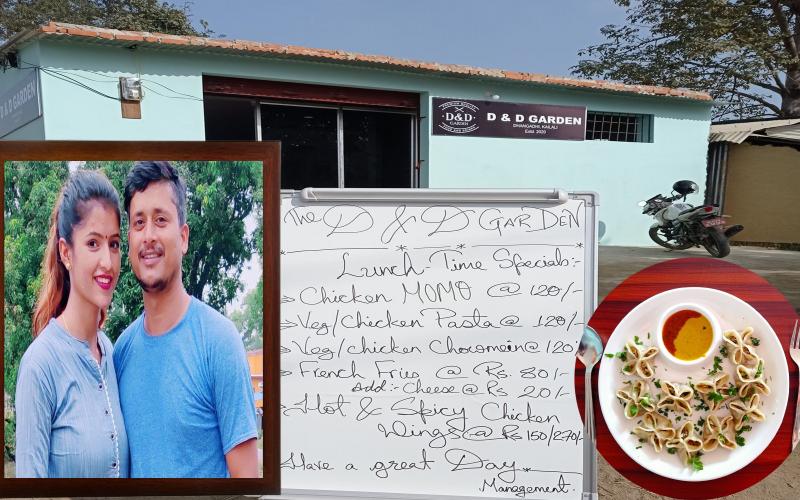 D & D GARDEN
PREMIUM QUALITY
D&D
GARDEN
D & D GARDEN
DHANGADHI, KAILALI
Estd. 2020
The D & D GARDEN
Lunch-Time Specials:-
Chicken MOMO @ 120/-
Veg/Chicken Pasta @ 120/-
Veg/chicken Chowmein @ 120/
French Fries @ Rs. 80/-
Add:- Cheese @ Rs 20/-
Hot & Spicy Chicken
Wings @ Rs 150/270/-
Have a great Day
Management.